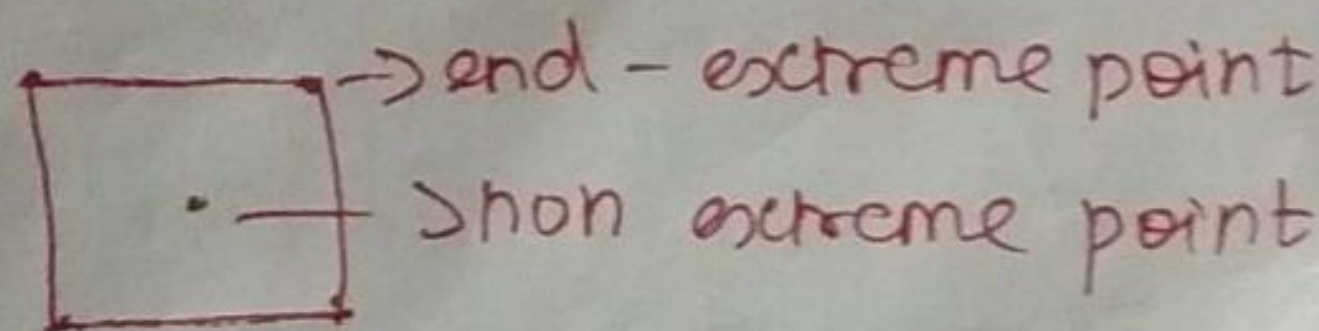 → end - extreme point
→ non extreme point